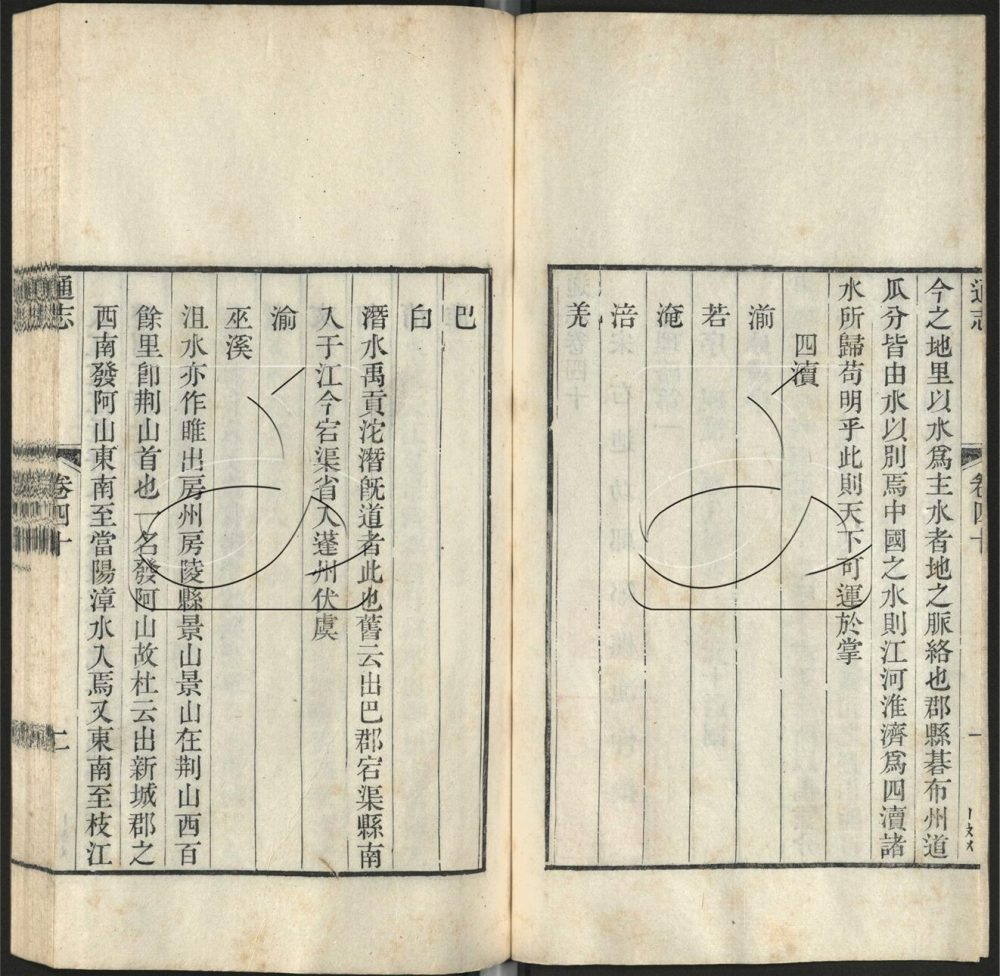 通志
卷四十
一
今之地里以水爲主水者地之脈絡也郡縣棊布州道
瓜分皆由水以別焉中國之水則江河淮濟爲四瀆諸
水所歸苟明乎此則天下可運於掌
四瀆
湔
若
淹
涪
羌
巴
白
潛水禹貢沱潛旣道者此也舊云出巴郡宕渠縣南
入于江今宕渠省入蓬州伏虞
渝
巫溪
沮水亦作睢出房州房陵縣景山景山在荆山西百
餘里卽荆山首也一名發阿山故杜云出新城郡之
西南發阿山東南至當陽漳水入焉又東南至枝江
通志
卷四十